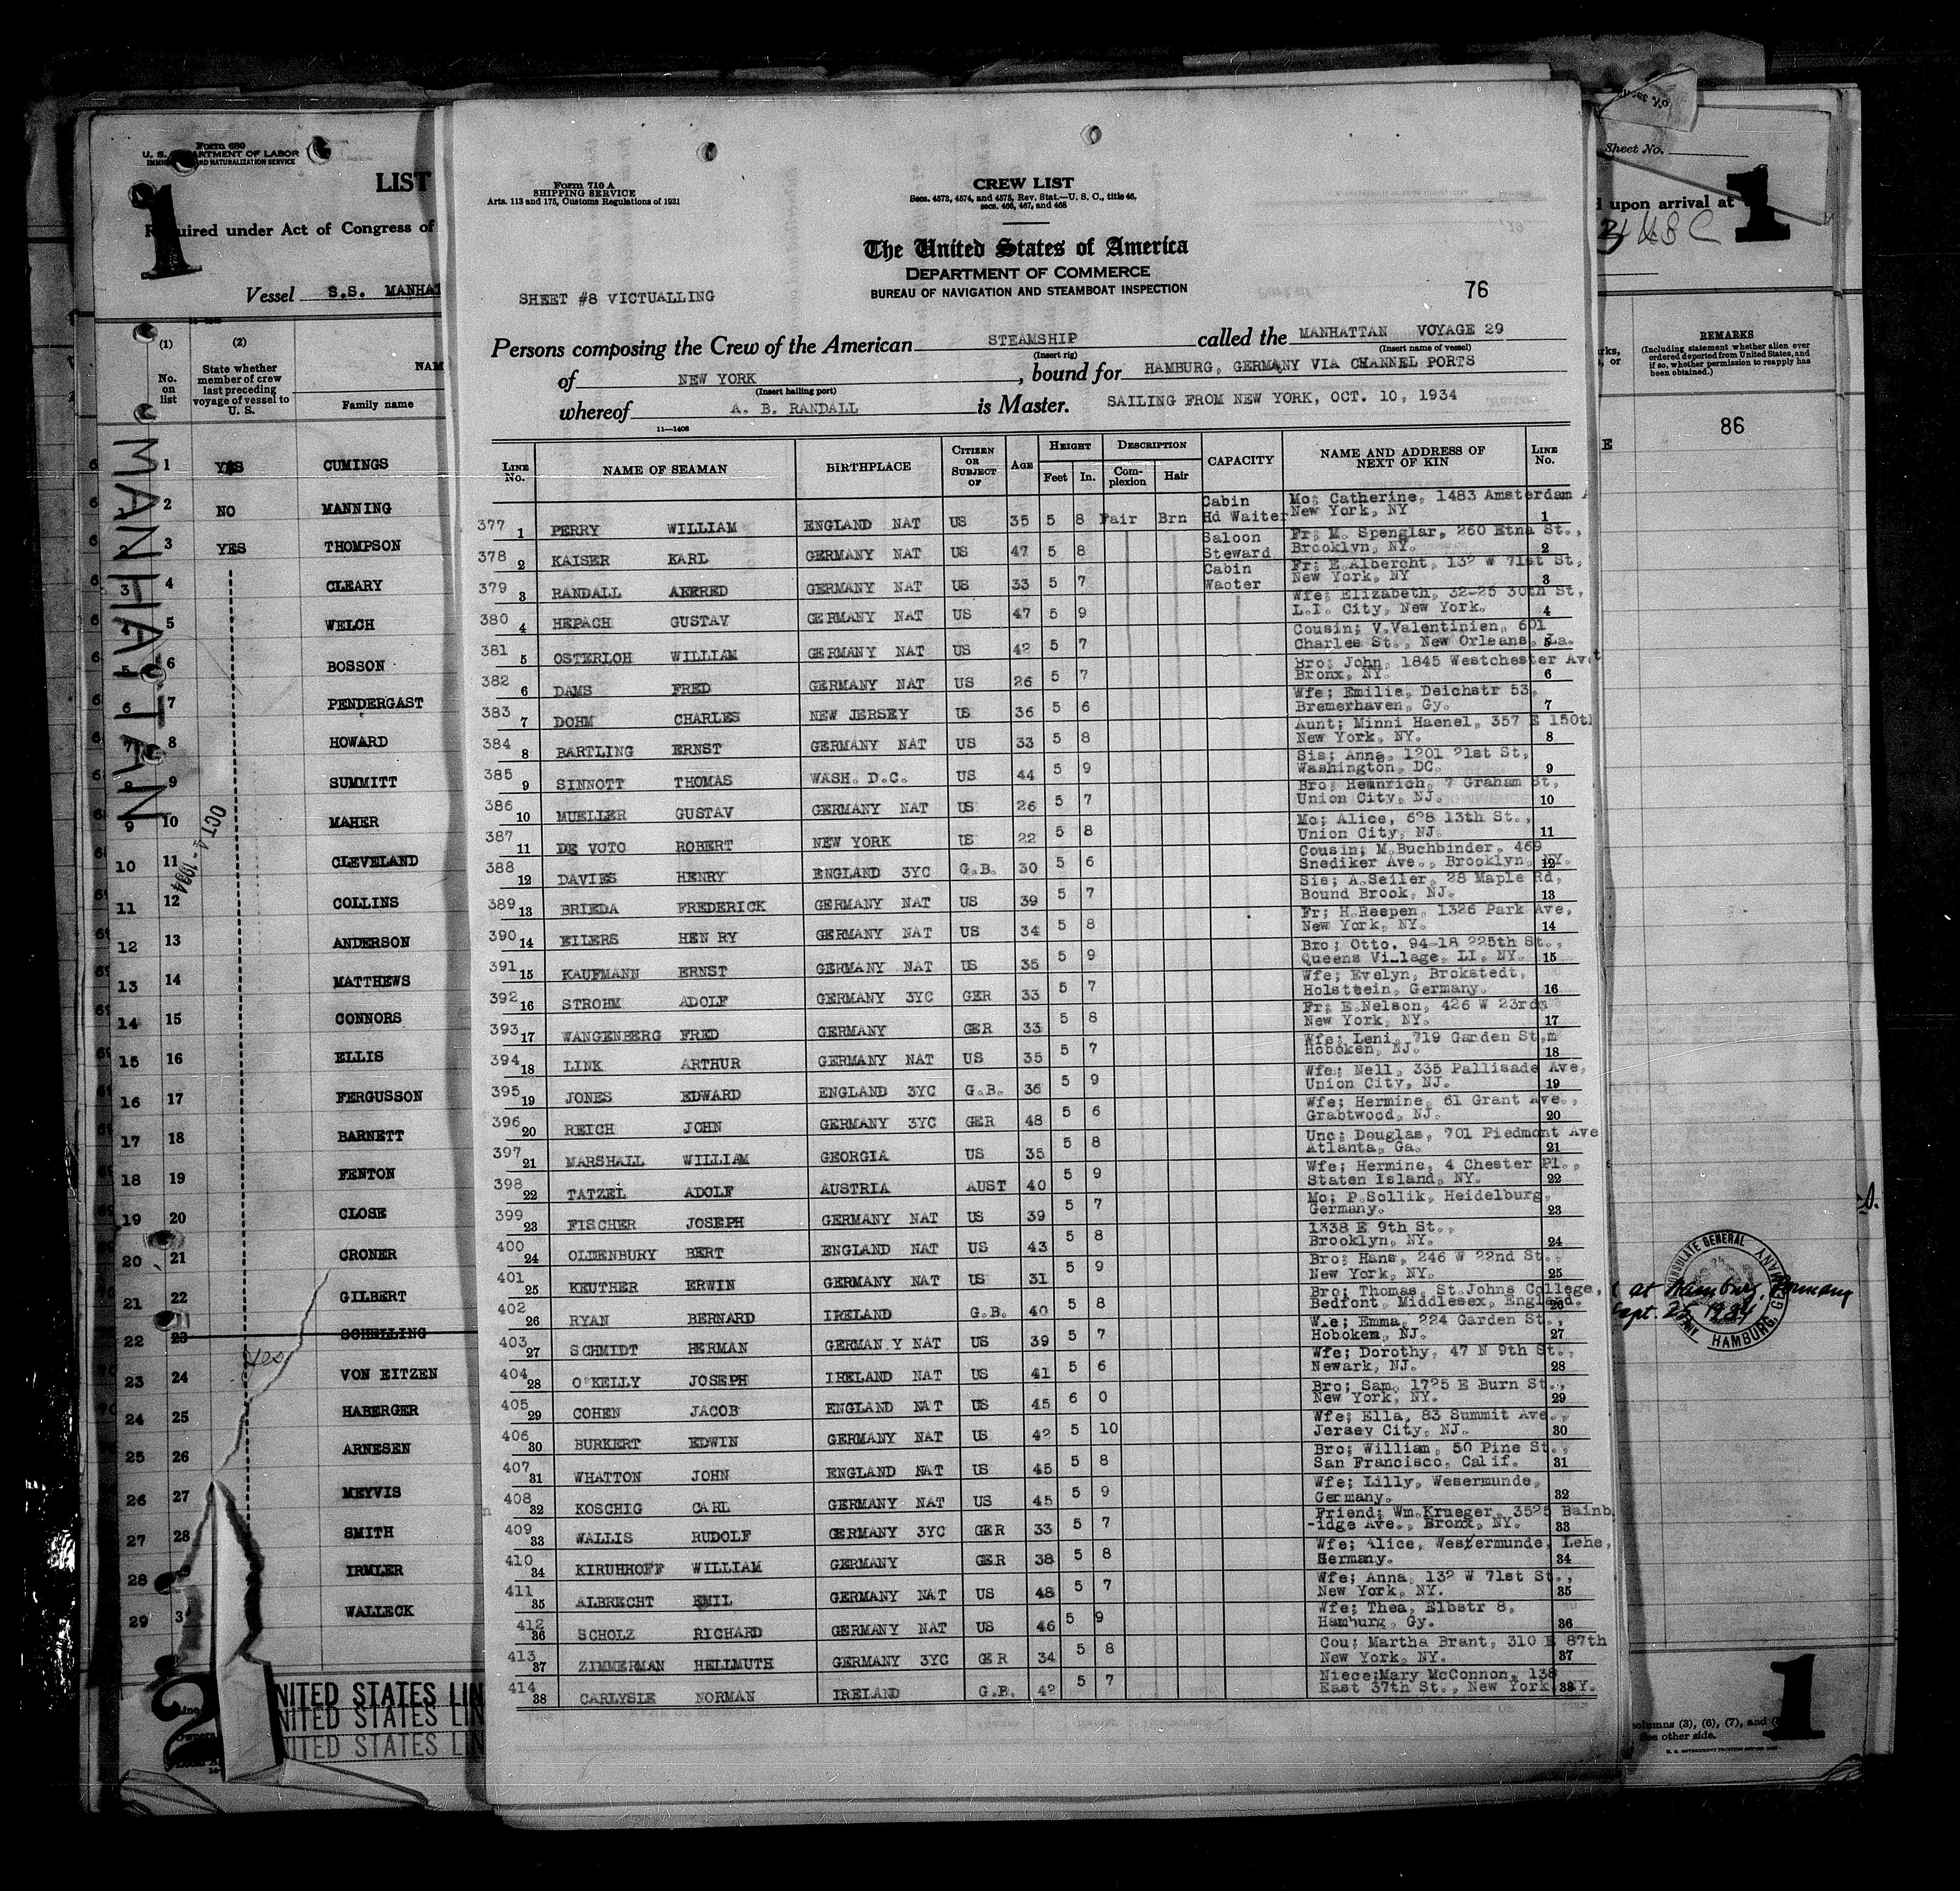 Form 680
U. S. DEPARTMENT OF LABOR
IMMIGRATION AND NATURALIZATION SERVICE
1
LIST
Required under Act of Congress of
Vessel S.S. MANHAT
(1) (2)
No. on list
State whether member of crew last preceding voyage of vessel to U. S.
NAM
Family name
MANHATTAN
OCT 4 - 1934
1 YES CUMINGS
2 NO MANNING
3 YES THOMPSON
3 4 CLEARY
4 5 WELCH
5 6 BOSSON
6 7 PENDERGAST
7 8 HOWARD
8 9 SUMMITT
9 10 MAHER
10 11 CLEVELAND
11 12 COLLINS
12 13 ANDERSON
13 14 MATTHEWS
14 15 CONNORS
15 16 ELLIS
16 17 FERGUSSON
17 18 BARNETT
18 19 FENTON
19 20 CLOSE
20 21 CRONER
21 22 GILBERT
22 23 SCHELLING
yes
23 24 VON EITZEN
24 25 HABERGER
25 26 ARNESEN
26 27 MEYVIS
27 28 SMITH
28 IRMLER
29 3 WALLECK
2
NITED STATES LIN
NITED STATES LIN
NITED STATES LIN
Form 710 A
SHIPPING SERVICE
Arts. 113 and 175, Customs Regulations of 1931
CREW LIST
Secs. 4573, 4574, and 4575, Rev. Stat.—U. S. C., title 46,
secs. 466, 467, and 468
The United States of America
DEPARTMENT OF COMMERCE
BUREAU OF NAVIGATION AND STEAMBOAT INSPECTION
SHEET #8 VICTUALLING
76
Persons composing the Crew of the American STEAMSHIP called the MANHATTAN VOYAGE 29
(Insert rig) (Insert name of vessel)
of NEW YORK, bound for HAMBURG, GERMANY VIA CHANNEL PORTS
(Insert hailing port)
whereof A. B. RANDALL is Master. SAILING FROM NEW YORK, OCT. 10, 1934
11—1408
LINE No. NAME OF SEAMAN BIRTHPLACE CITIZEN OR SUBJECT OF AGE HEIGHT Feet In. DESCRIPTION Complexion Hair CAPACITY NAME AND ADDRESS OF NEXT OF KIN LINE No.
377 1 PERRY WILLIAM ENGLAND NAT US 35 5 8 Fair Brn Cabin Hd Waiter Mo; Catherine, 1483 Amsterdam A New York, NY 1
378 2 KAISER KARL GERMANY NAT US 47 5 8 Saloon Steward Fr; M. Spenglar, 260 Etna St., Brooklyn, NY. 2
379 3 RANDALL AERRED GERMANY NAT US 33 5 7 Cabin Waoter Fr; E.Albercht, 132 W 71st St, New York, NY 3
380 4 HEPACH GUSTAV GERMANY NAT US 47 5 9 Wfe; Elizabeth, 32-25 30th St, L.I. City, New York. 4
381 5 OSTERLOH WILLIAM GERMANY NAT US 42 5 7 Cousin; V.Valentinien, 601 Charles St., New Orleans, La. 5
382 6 DAMS FRED GERMANY NAT US 26 5 7 Bro; John, 1845 Westchester Ave Bronx, NY. 6
383 7 DOHM CHARLES NEW JERSEY US 36 5 6 Wfe; Emilie, Deichstr 53, Bremerhaven, Gy. 7
384 8 BARTLING ERNST GERMANY NAT US 33 5 8 Aunt; Minni Haenel, 357 E 150th New York, NY. 8
385 9 SINNOTT THOMAS WASH. D.C. US 44 5 9 Sis; Anna, 1201 21st St, Washington, DC. 9
386 10 MUELLER GUSTAV GERMANY NAT US 26 5 7 Bro; Heinrich, 7 Graham St, Union City, NJ. 10
387 11 DE VOTO ROBERT NEW YORK US 22 5 8 Mo; Alice, 628 13th St., Union City, NJ. 11
388 12 DAVIES HENRY ENGLAND 3YC G.B. 30 5 6 Cousin; M.Buchbinder, 469 Snediker Ave., Brooklyn, NY. 12
389 13 BRIEDA FREDERICK GERMANY NAT US 39 5 7 Sis; A.Seiler, 28 Maple Rd, Bound Brook, NJ. 13
390 14 EILERS HEN RY GERMANY NAT US 34 5 8 Fr; H.Reepen, 1326 Park Ave, New York, NY. 14
391 15 KAUFMANN ERNST GERMANY NAT US 35 5 9 Bro; Otto, 94-18 225th St., Queens Village, LI, NY. 15
392 16 STROHM ADOLF GERMANY 3YC GER 33 5 7 Wfe; Evelyn, Brokstedt, Holstein, Germany. 16
393 17 WANGENBERG FRED GERMANY GER 33 5 8 Fr; E.Nelson, 426 W 23rd New York, NY. 17
394 18 LINK ARTHUR GERMANY NAT US 35 5 7 Wfe; Leni, 719 Garden St,m Hoboken, NJ. 18
395 19 JONES EDWARD ENGLAND 3YC G.B. 36 5 9 Wfe; Nell, 335 Pallisade Ave, Union City, NJ. 19
396 20 REICH JOHN GERMANY 3YC GER 48 5 6 Wfe; Hermine, 61 Grant Ave., Grabtwood, NJ. 20
397 21 MARSHALL WILLIAM GEORGIA US 35 5 8 Unc; Douglas, 701 Piedmont Ave Atlanta, Ga. 21
398 22 TATZEL ADOLF AUSTRIA AUST 40 5 9 Wfe; Hermine, 4 Chester Pl., Staten Island, NY. 22
399 23 FISCHER JOSEPH GERMANY NAT US 39 5 7 Mo; P.Sollik, Heidelburg, Germany. 23
400 24 OLDENBURY BERT ENGLAND NAT US 43 5 8 1338 E 9th St., Brooklyn, NY. 24
401 25 KEUTHER ERWIN GERMANY NAT US 31 5 9 Bro; Hans, 246 W 22nd St., New York, NY. 25
402 26 RYAN BERNARD IRELAND G.B. 40 5 8 Bro; Thomas, St.Johns College, Bedfont, Middlesex, England. 26
403 27 SCHMIDT HERMAN GERMAN Y NAT US 39 5 7 W.e; Emma, 224 Garden St., Hoboken, NJ. 27
404 28 O'KELLY JOSEPH IRELAND NAT US 41 5 6 Wfe; Dorothy, 47 N 9th St., Newark, NJ. 28
405 29 COHEN JACOB ENGLAND NAT US 45 6 0 Bro; Sam, 1725 E Burn St., New York, NY. 29
406 30 BURKERT EDWIN GERMANY NAT US 42 5 10 Wfe; Ella, 83 Summit Ave., Jersey City, NJ. 30
407 31 WHATTON JOHN ENGLAND NAT US 45 5 8 Bro; William, 50 Pine St., San Francisco, Calif. 31
408 32 KOSCHIG CARL GERMANY NAT US 45 5 9 Wfe; Lilly, Wesermunde, Germany. 32
409 33 WALLIS RUDOLF GERMANY 3YC GER 33 5 7 Friend; Wm.Krueger, 3525 Bainb -idge Ave., Bronx, NY. 33
410 34 KIRUHHOFF WILLIAM GERMANY GER 38 5 8 Wfe; Alice, Westermunde, Lehe, Germany. 34
411 35 ALBRECHT EMIL GERMANY NAT US 48 5 7 Wfe; Anna, 132 W 71st St., New York, NY. 35
412 36 SCHOLZ RICHARD GERMANY NAT US 46 5 9 Wfe; Thea, Elbstr 8, Hamburg, Gy. 36
413 37 ZIMMERMAN HELLMUTH GERMANY 3YC GER 34 5 8 Cou; Martha Brant, 310 E 87th New York, NY. 37
414 38 CARLYSIE NORMAN IRELAND G.B. 42 5 7 Niece;Mary McConnon, 138 East 37th St., New York, NY. 38
Sheet No.
upon arrival at
1
REMARKS
(Including statement whether alien ever ordered deported from United States, and if so, whether permission to reapply has been obtained.)
86
E
at Hamburg, Germany
Sept. 25, 1934
CONSULATE GENERAL
HAMBURG, GERMANY
columns (3), (6), (7), and
See other side.
1